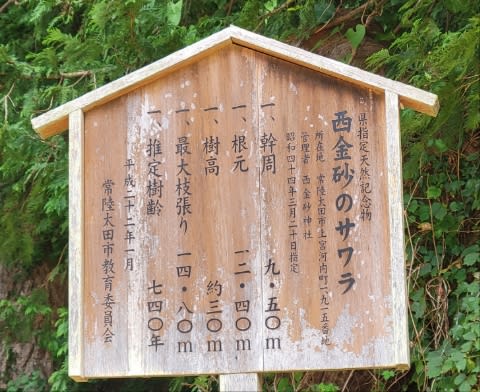 県指定天然記念物
西金砂のサワラ
所在地 常陸太田市上宮河内町一九一五番地
管理者 西金砂神社
昭和四十四年三月二十日指定
一、幹周 九・五〇m
一、根元 一二・四〇m
一、樹高 約三〇m
一、最大枝張り 一四・八〇m
一、推定樹齢 七四〇年
平成二十二年一月
常陸太田市教育委員会